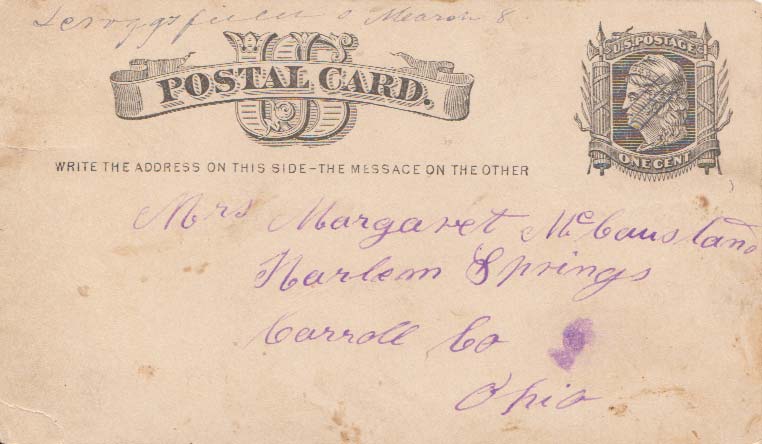 Scroggsfield O March 8
U.S. POSTAGE
US
POSTAL CARD.
ONE CENT
WRITE THE ADDRESS ON THIS SIDE - THE MESSAGE ON THE OTHER
Mrs Margaret McCausland
Harlem Springs
Carroll Co
Ohio